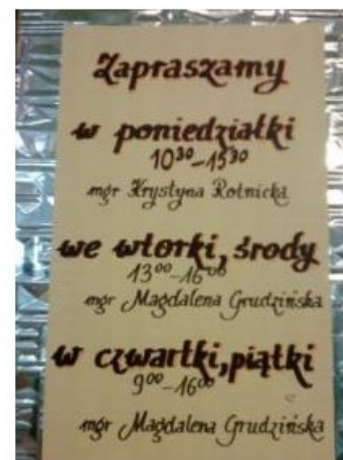 Zapraszamy
w poniedziałki
10³⁰-15³⁰
mgr Krystyna Rotnicka
we wtorki, środy
13⁰⁰-16⁰⁰
mgr Magdalena Grudzińska
w czwartki, piątki
9⁰⁰-16⁰⁰
mgr Magdalena Grudzińska